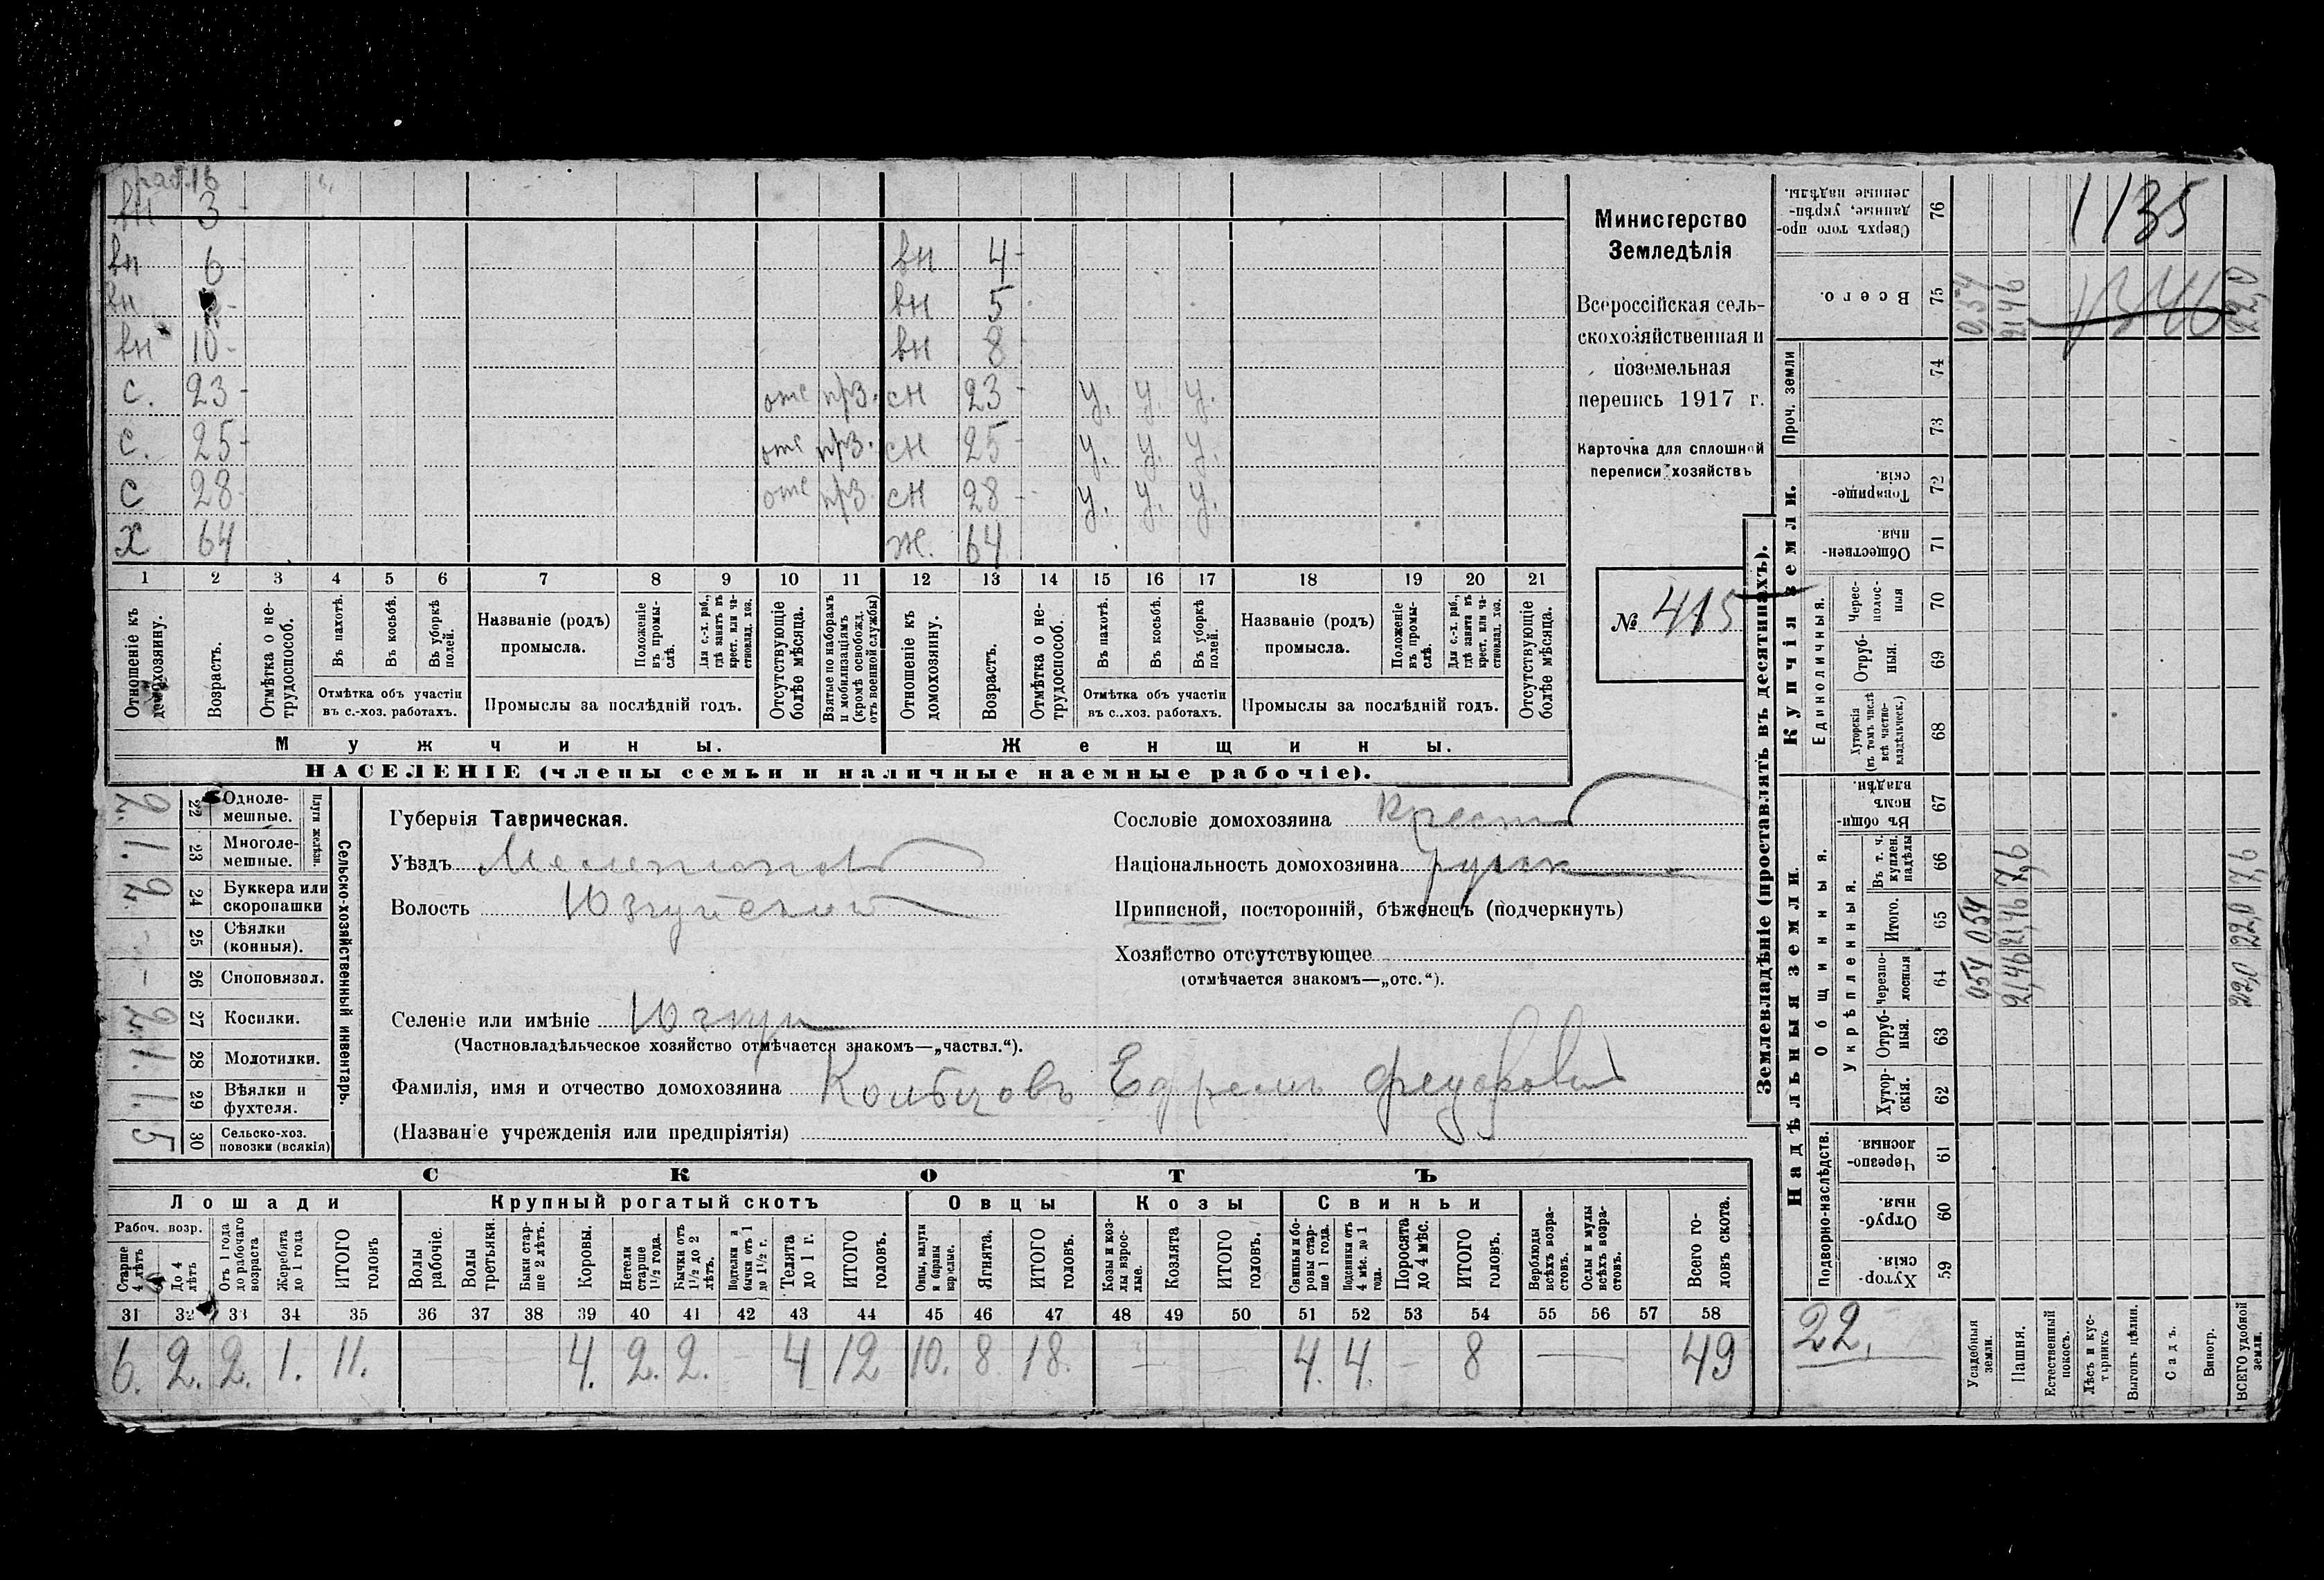 раб. 16
вн 3 -
вн 6 вн 4 -
вн вн 5
вн 10 - вн 8
с. 23 - отс прз. сн 23 - у. у. у.
с. 25 - отс прз. сн 25 - у. у. у.
с 28 - отс прз. сн 28 - у. у. у.
х 64 ж. 64
1 2 3 4 5 6 7 8 9 10 11 12 13 14 15 16 17 18 19 20 21
Отношеніе къ домохозяину.
Возрастъ.
Отмѣтка о нетрудоспособ.
Въ пахотѣ.
Въ косьбѣ.
Въ уборкѣ полей.
Отмѣтка объ участіи
въ с.-хоз. работахъ.
Названіе (родъ)
промысла.
Положеніе въ промыслѣ.
Для с.-х. раб., гдѣ занятъ въ крест. или частновлад. хоз.
Промыслы за послѣдній годъ.
Отсутствующіе болѣе мѣсяца.
Взятые по наборамъ и мобилизаціямъ (кромѣ освобожд. отъ военной службы)
Отношеніе къ домохозяину.
Возрастъ.
Отмѣтка о нетрудоспособ.
Въ пахотѣ.
Въ косьбѣ.
Въ уборкѣ полей.
Отмѣтка объ участіи
въ с.-хоз. работахъ.
Названіе (родъ)
промысла.
Положеніе въ промыслѣ.
Для с.-х. раб., гдѣ занята въ крест. или частновлад. хоз.
Промыслы за послѣдній годъ.
Отсутствующіе болѣе мѣсяца.
Мужчины. Женщины.
НАСЕЛЕНІЕ (члены семьи и наличные наемные рабочіе).
Министерство
Земледѣлія
Всероссійская сель-
скохозяйственная и
поземельная
перепись 1917 г.
Карточка для сплошной
переписи хозяйствъ
№ 415
Сельско-хозяйственный инвентарь.
Плуги желѣзн.
22 Одноле-
мешные. 2.
23 Многоле-
мешные. 1.
24 Буккера или
скоропашки 2.
25 Сѣялки
(конныя). -
26 Сноповязал. -
27 Косилки. 2.
28 Молотилки. 1.
29 Вѣялки и
фухтеля. 1.
30 Сельско-хоз.
повозки (всякія) 5
Губернія Таврическая.
Уѣздъ Мелитопол
Волость Юзкуйской
Селеніе или имѣніе Юзкуи
(Частновладѣльческое хозяйство отмѣчается знакомъ—„частвл.“).
Фамилія, имя и отчество домохозяина Кольцовъ Ефремъ Федоров
(Названіе учрежденія или предпріятія)
Сословіе домохозяина Крест
Національность домохозяина русск
Приписной, посторонній, бѣженецъ (подчеркнуть)
Хозяйство отсутствующее
(отмѣчается знакомъ—„отс.“).
СКОТЪ
Лошади Крупный рогатый скотъ Овцы Козы Свиньи
Рабоч. возр.
Старше 4 лѣтъ
До 4 лѣтъ
Отъ 1 года до рабочаго возраста
Жеребята до 1 года
ИТОГО головъ
Волы рабочіе.
Волы третьяки.
Быки старше 2 лѣтъ.
Коровы.
Нетели старше 1½ года.
Бычки отъ 1½ до 2 лѣтъ.
Подтелки и бычки отъ 1 до 1½ г.
Телята до 1 г.
ИТОГО головъ.
Овцы, валухи и бараны взрослые.
Ягнята.
ИТОГО головъ.
Козы и козлы взрослые.
Козлята
ИТОГО головъ.
Свиньи и боровы старше 1 года.
Подсвинки отъ 4 мѣс. до 1 года.
Поросята до 4 мѣс.
ИТОГО головъ.
Верблюды всѣхъ возрастовъ.
Ослы и мулы всѣхъ возрастовъ.
Всего головъ скота.
31 32 33 34 35 36 37 38 39 40 41 42 43 44 45 46 47 48 49 50 51 52 53 54 55 56 57 58
6. 2. 2. 1. 11. — 4. 2. 2. - 4 12 10. 8 18. — — 4. 4. - 8 — 49
Землевладѣніе (проставлять въ десятинахъ).
Надѣльныя земли.
Купчія земли.
Проч. земли
Подворно-наслѣдств.
Общинныя.
Укрѣпленныя.
Единоличныя.
Хутор-
скія. 59
Отруб-
ныя. 60
Черезпо-
лосныя 61
Хутор-
скія. 62
Отруб-
ныя. 63
Черезпо-
лосныя 64
Итого. 65
Въ т. ч. куплен. надѣлы 66
Въ общин-
номъ
владѣн. 67
Хуторскія
(въ томъ числѣ
всѣ частно-
владѣльческ.) 68
Отруб-
ныя. 69
Черес-
полос-
ныя 70
Обществен-
ныя 71
Товарище-
скія. 72
73
74
Всего. 75
Сверхъ того про-
данные, укрѣп-
ленные надѣлы. 76
22.
Усадебныя земли. 054 054 0,54
Пашня. 21,46 21,46 7,6 2146
Естественный покосъ.
Лѣсъ и кустарникъ
Выгонъ цѣлин.
Садъ.
Виногр.
ВСЕГО удобной земли. 22,0 22,0 7,6 22,0
1135
1346